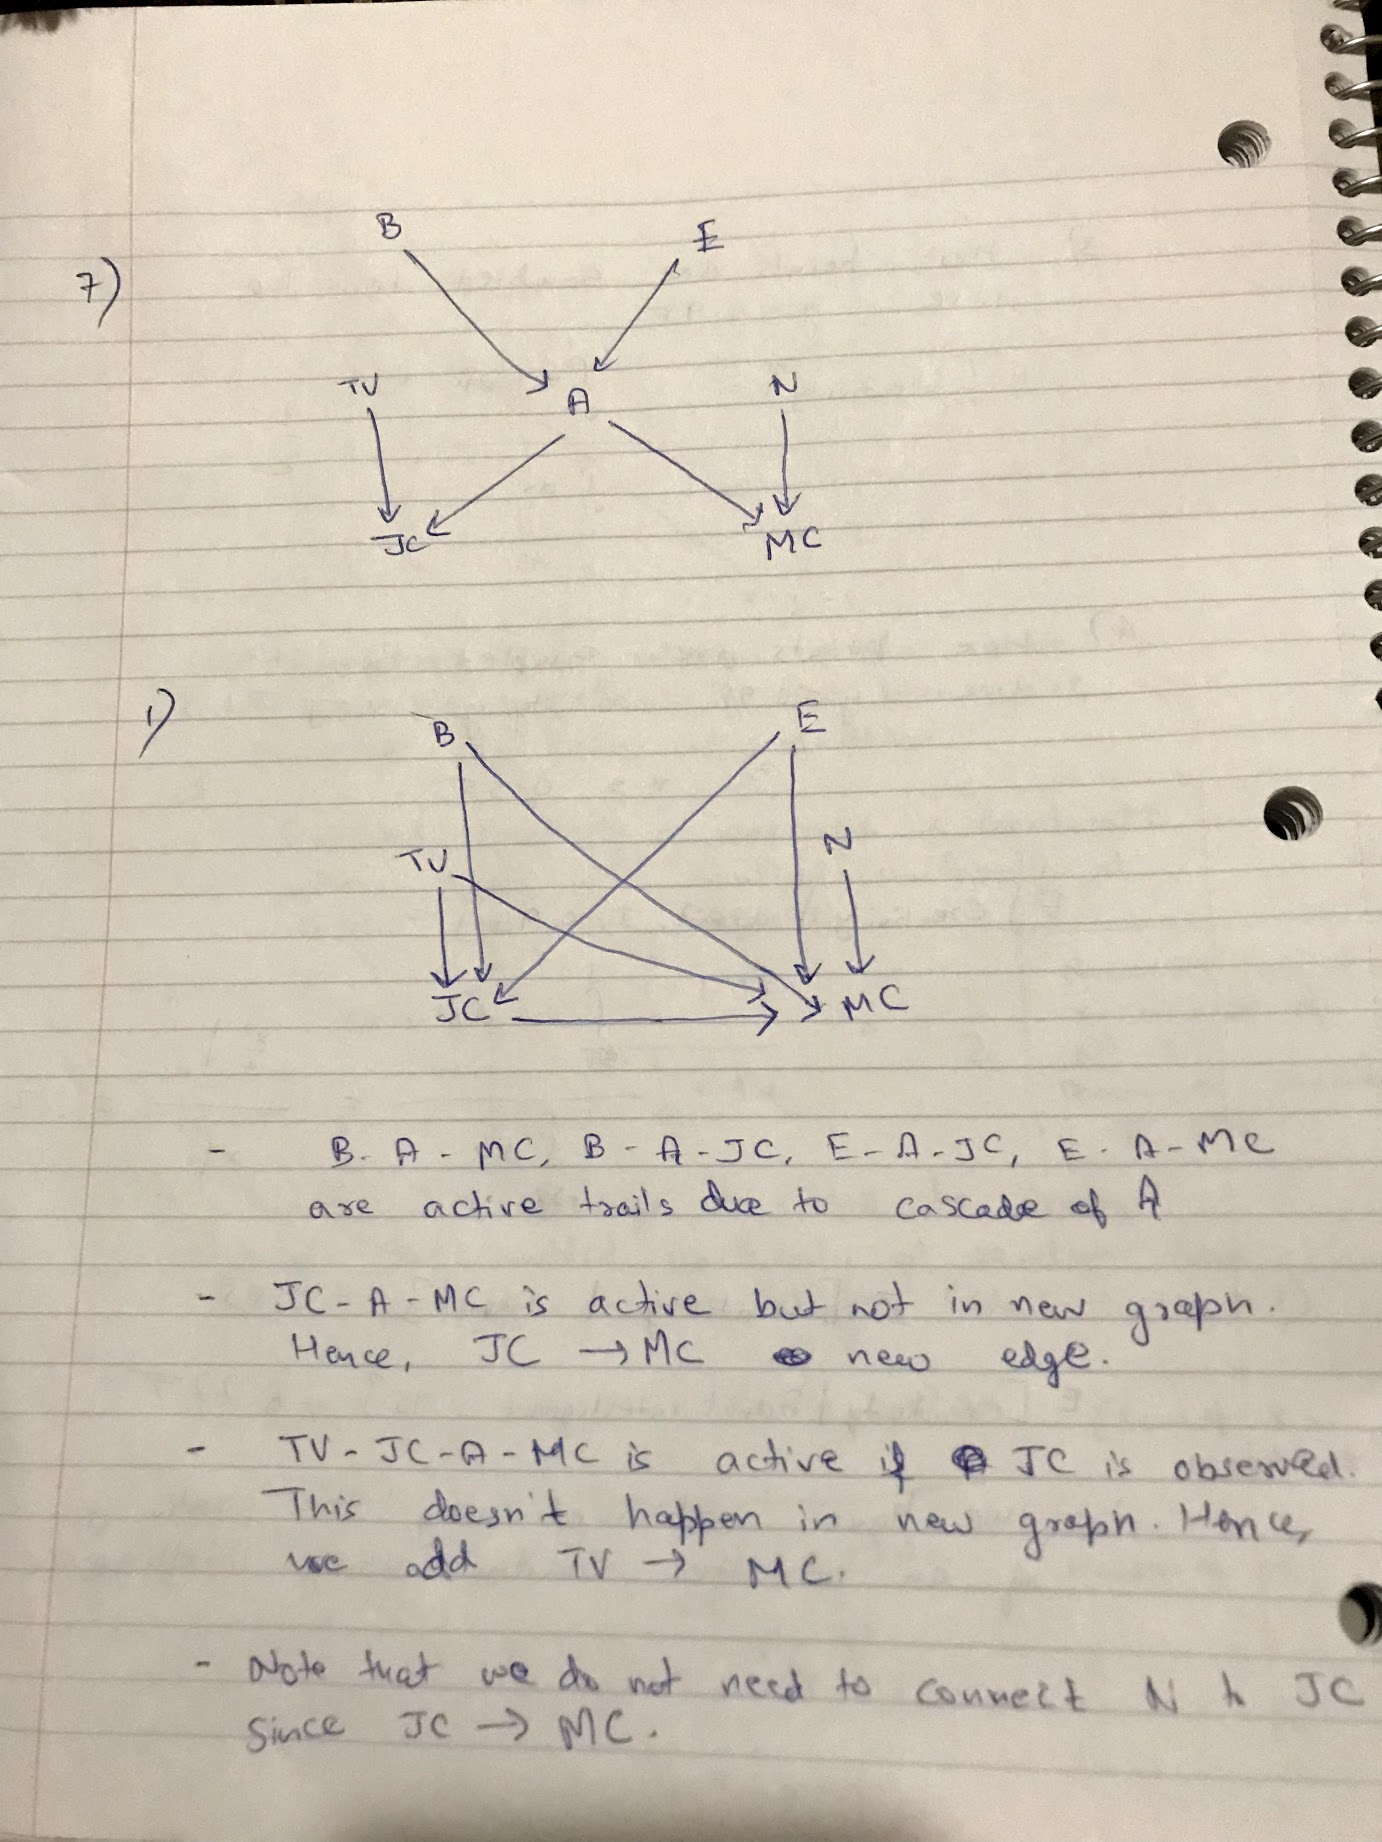 7)
B E
TV A N
JC MC
1)
B E
N
TV
JC MC
- B - A - MC, B - A - JC, E - A - JC, E - A - MC
are active trails due to cascade of A
- JC - A - MC is active but not in new graph.
Hence, JC → MC new edge.
- TV - JC - A - MC is active if JC is observed.
This doesn't happen in new graph. Hence,
we add TV → MC.
- Note that we do not need to connect N to JC
since JC → MC.